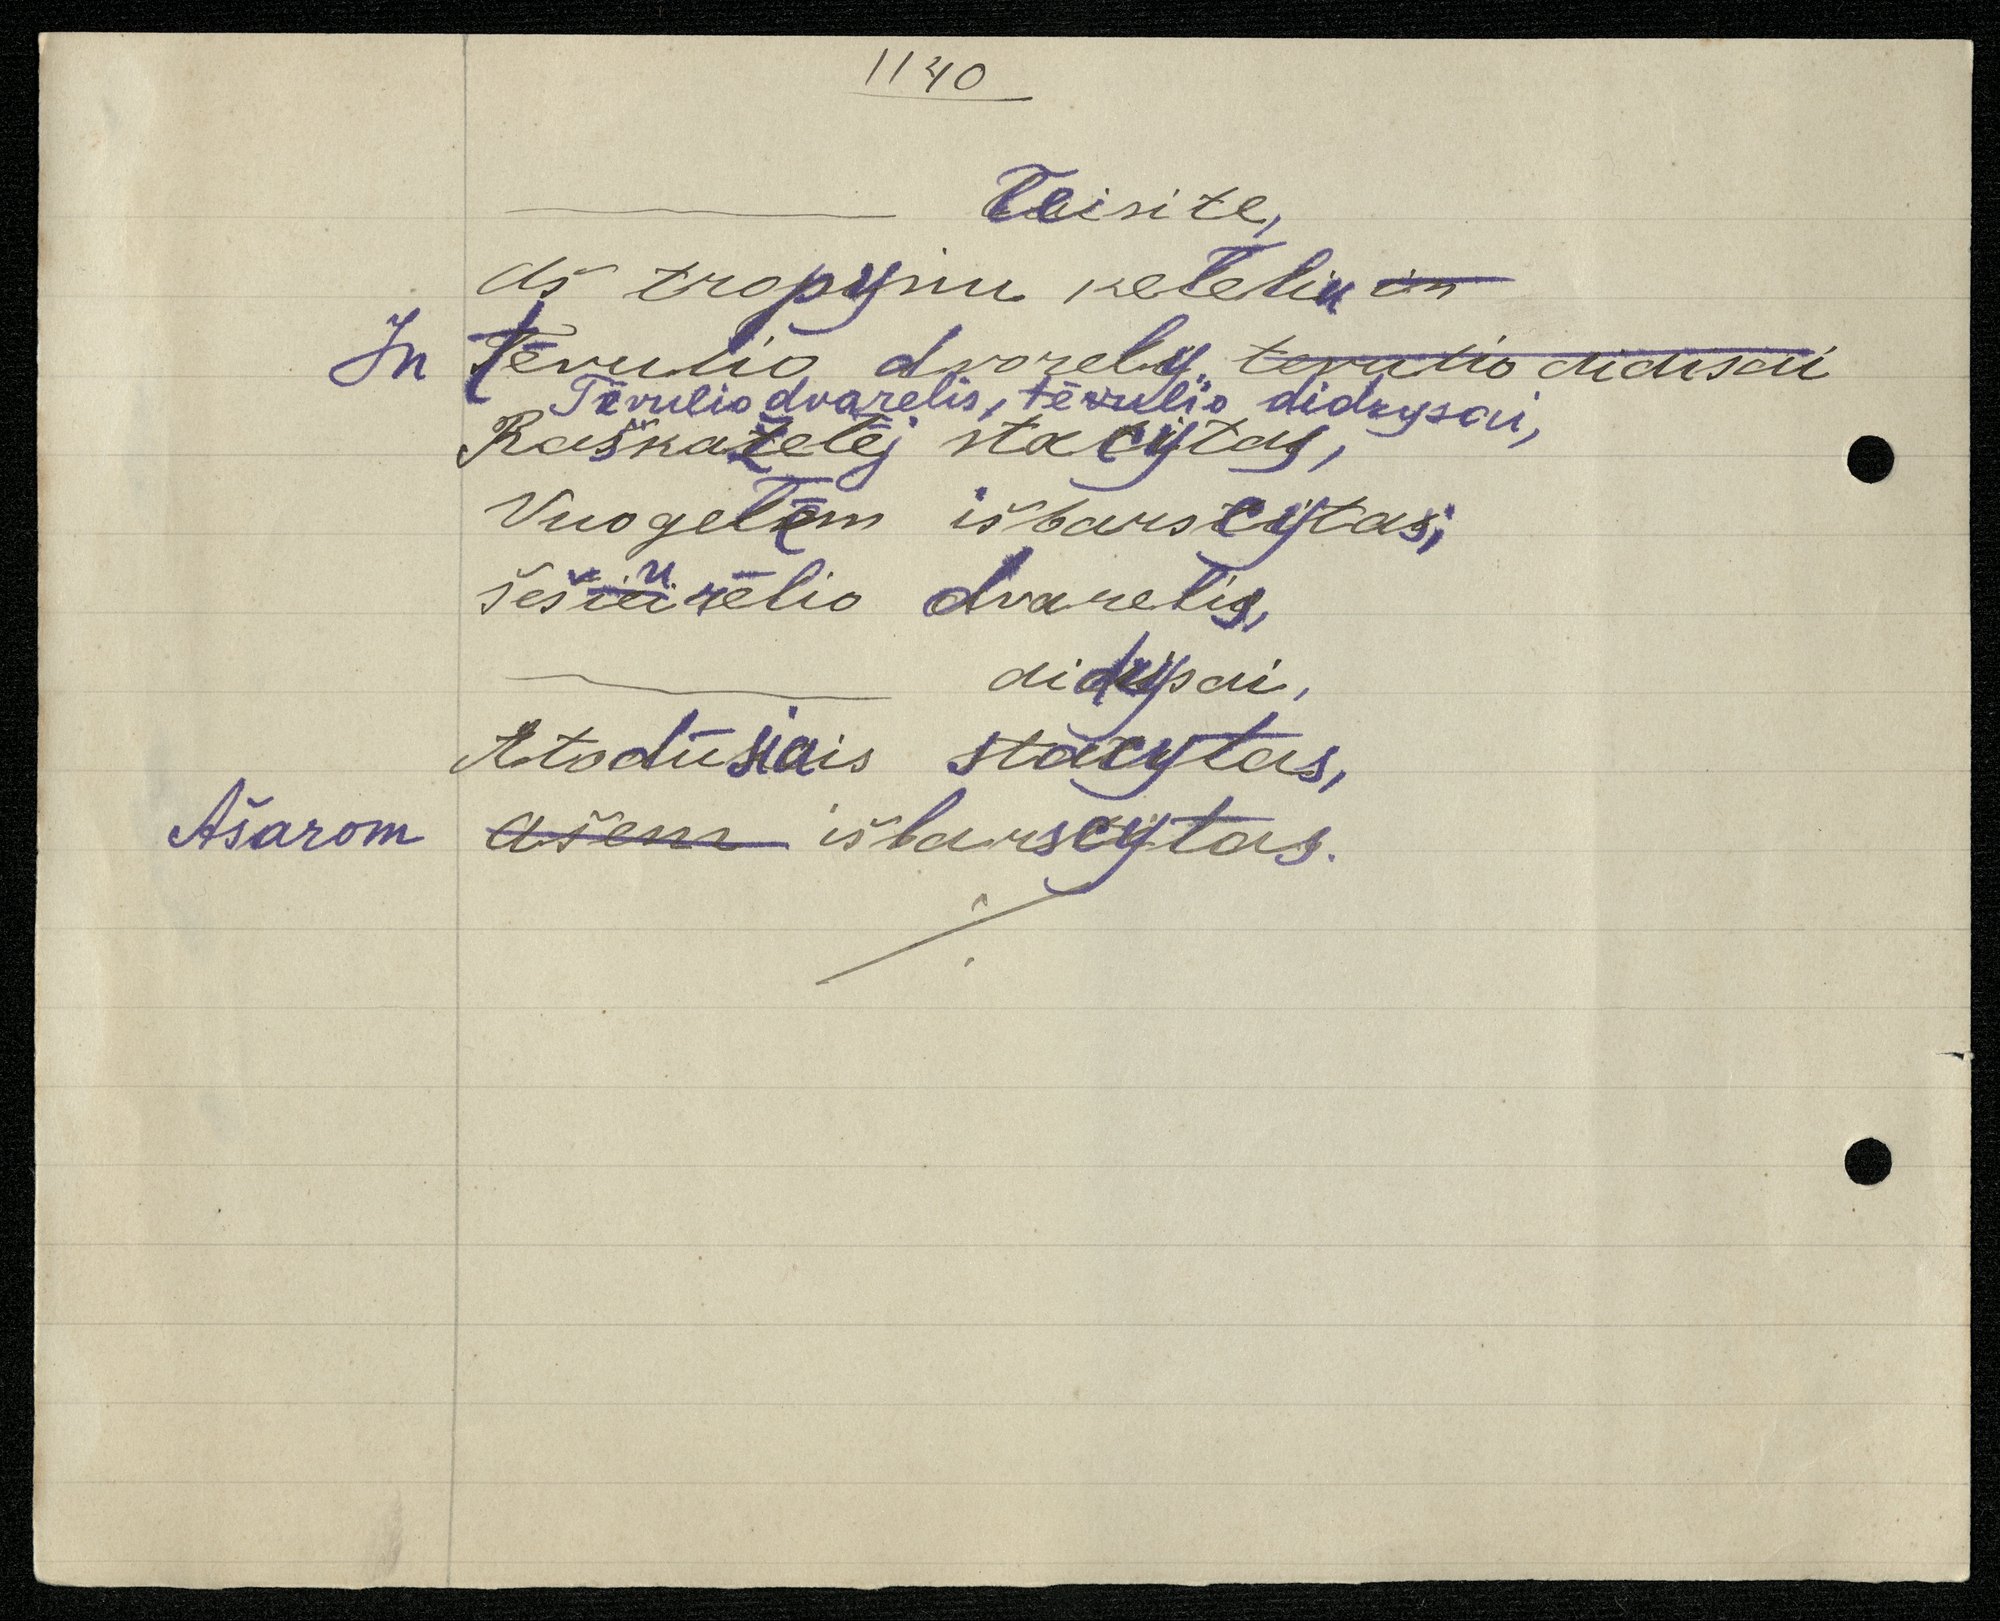 1140
——— Teisite,
aš tropynu keleliu in
In tėvulio dvarely, tevulio didisai
Tėvulio dvarelis, tėvulio didzysai,
Raškažėlėj stacytas,
Vuogelėm išbarscytas;
šešiurėlio dvarelis,
——— didzysai,
Atodūsiais stacytas,
Ašarom ašem išbarscytas.